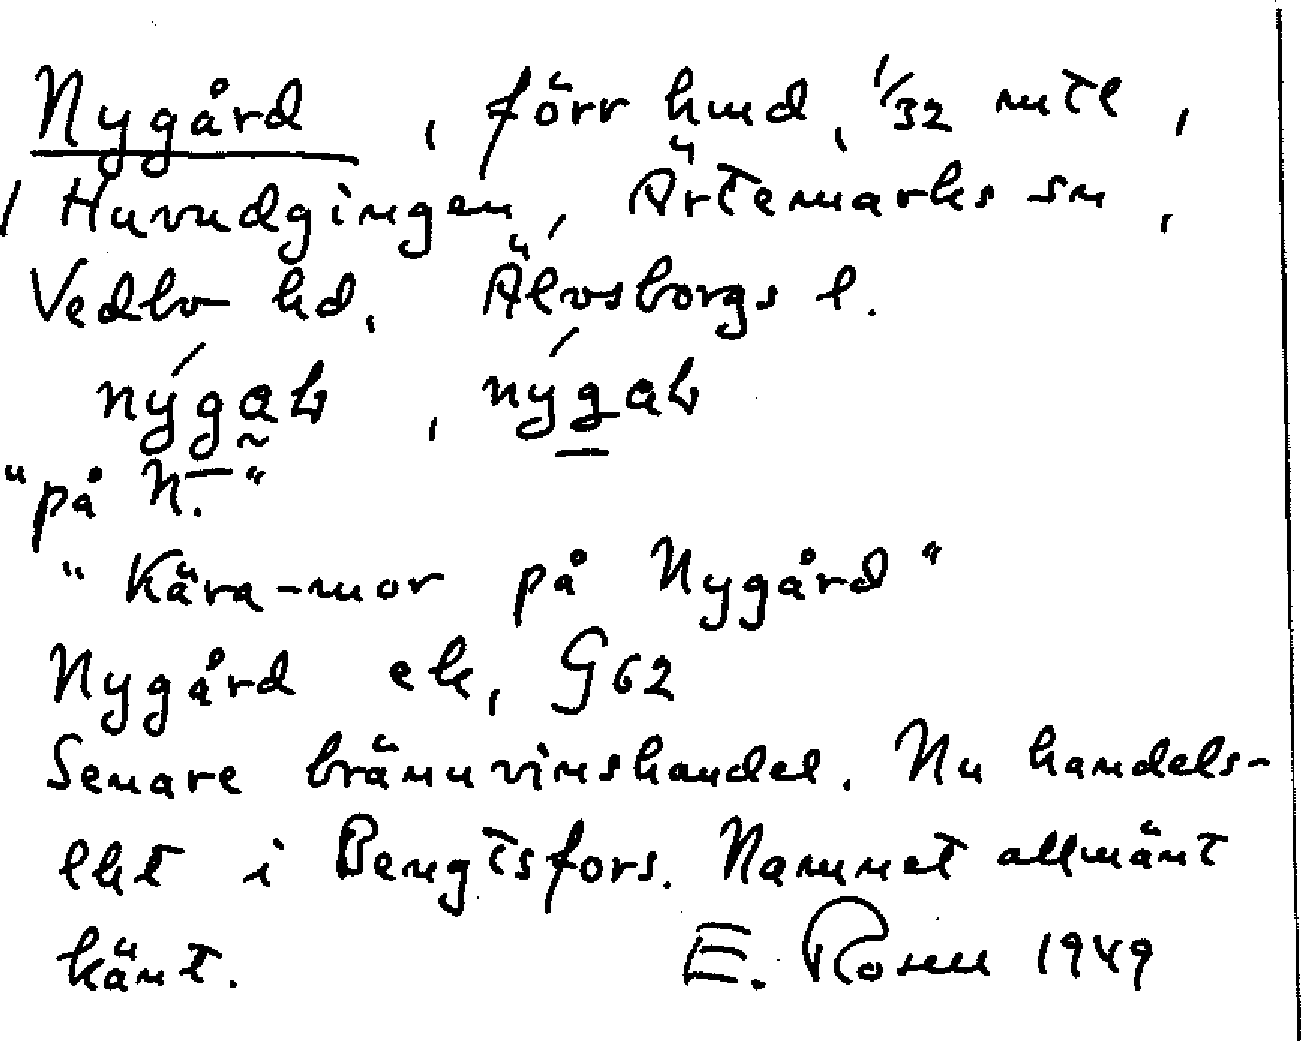 Nygård, förr hmd, 1/32 mtl,
/ Huvudgingen, Ärtemarks sn,
Vedbo hd, Älvsborgs l.
nýgaƚ, nýgaƚ
"på N."
"Kära-mor på Nygård"
Nygård ek, G62
Senare brännvinshandel. Nu handels-
lht i Bengtsfors. Namnet allmänt
känt. E. Rosell 1949